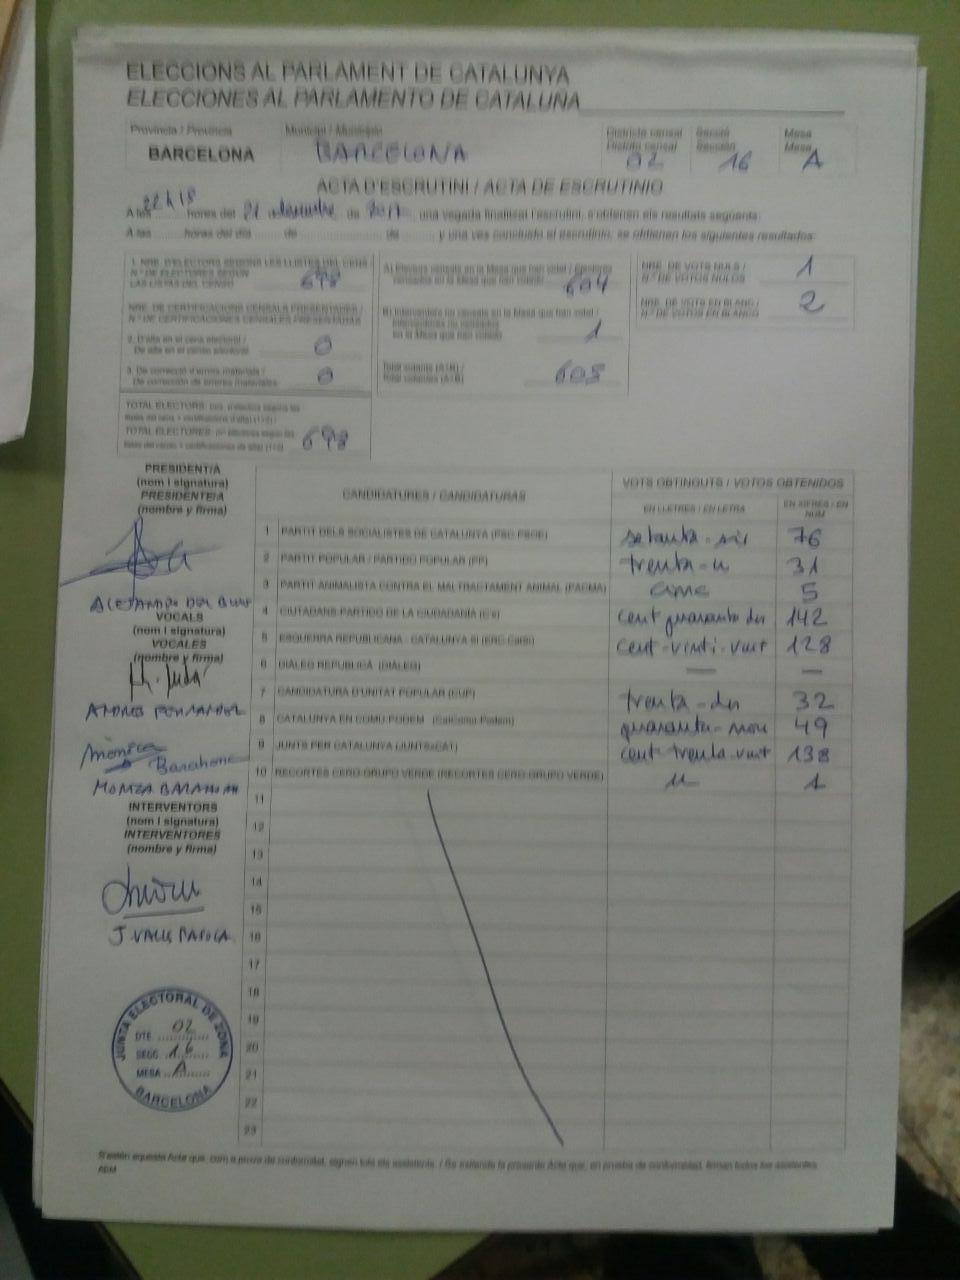 ELECCIONS AL PARLAMENT DE CATALUNYA
ELECCIONES AL PARLAMENTO DE CATALUÑA
Província / Provincia
BARCELONA
Municipi / Municipio
BARCELONA
Districte censal
Distrito censal
02
Secció
Sección
16
Mesa
Mesa
A
ACTA D'ESCRUTINI / ACTA DE ESCRUTINIO
A les 22h18 hores del 21 de 2017, una vegada finalitzat l'escrutini, s'obtenen els resultats següents:
A las ........ horas del día ........ de ........ de ........ y una vez concluido el escrutinio, se obtienen los siguientes resultados:
1. NRE. D'ELECTORS SEGONS LES LLISTES DEL CENS
N.º DE ELECTORES SEGÚN
LAS LISTAS DEL CENSO
698
NRE. DE CERTIFICACIONS CENSALS PRESENTADES /
N.º DE CERTIFICACIONES CENSALES PRESENTADAS
2. D'alta en el cens electoral /
De alta en el censo electoral
0
3. De correcció d'errors materials /
De corrección de errores materiales
0
TOTAL ELECTORS:
TOTAL ELECTORES:
698
A) Electors censats en la Mesa que han votat / Electores
censados en la Mesa que han votado
604
B) Interventors no censats en la Mesa que han votat /
Interventores no censados
en la Mesa que han votado
1
Total votants (A+B) /
Total votantes (A+B)
605
NRE. DE VOTS NULS /
N.º DE VOTOS NULOS
1
NRE. DE VOTS EN BLANC /
N.º DE VOTOS EN BLANCO
2
PRESIDENT/A
(nom i signatura)
PRESIDENTE/A
(nombre y firma)
VOCALS
(nom i signatura)
VOCALES
(nombre y firma)
ANDRES FERNANDEZ
Mònica
Barahona
INTERVENTORS
(nom i signatura)
INTERVENTORES
(nombre y firma)
CANDIDATURES / CANDIDATURAS
VOTS OBTINGUTS / VOTOS OBTENIDOS
EN LLETRES / EN LETRA
EN XIFRES / EN NÚM
1 PARTIT DELS SOCIALISTES DE CATALUNYA (PSC-PSOE) setanta-sis 76
2 PARTIT POPULAR / PARTIDO POPULAR (PP) trenta-u 31
3 PARTIT ANIMALISTA CONTRA EL MALTRACTAMENT ANIMAL (PACMA) cinc 5
4 CIUTADANS-PARTIDO DE LA CIUDADANÍA (C's) cent quaranta dos 142
5 ESQUERRA REPUBLICANA - CATALUNYA SÍ (ERC-CatSí) cent-vinti-vuit 128
6 DIÀLEG REPUBLICÀ (DIÀLEG) — —
7 CANDIDATURA D'UNITAT POPULAR (CUP) trenta-dos 32
8 CATALUNYA EN COMÚ PODEM (CatComú-Podem) quaranta-nou 49
9 JUNTS PER CATALUNYA (JUNTSxCAT) cent trenta-vuit 138
10 RECORTES CERO-GRUPO VERDE (RECORTES CERO-GRUPO VERDE) u 1
11
12
13
14
15
16
17
18
19
20
21
22
23
JUNTA ELECTORAL DE ZONA
DTE. 02
SECC. 16
MESA A
BARCELONA